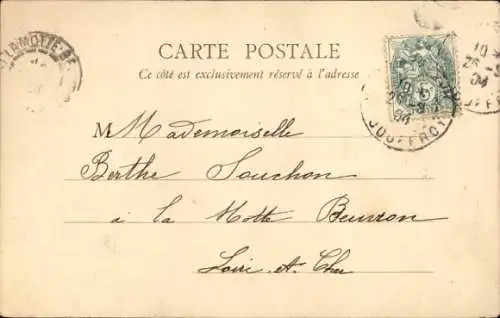 LAMOTTE-BE
CARTE POSTALE
Ce côté est exclusivement réservé à l'adresse
JOUFFROY
M Mademoiselle
Berthe Souchon
à la Motte Beuvron
Loir et Cher